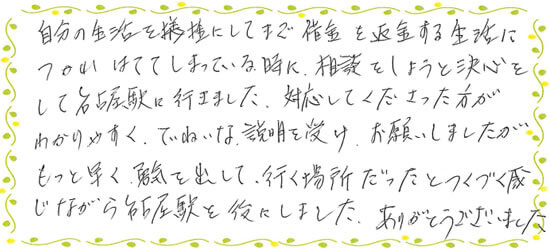 自分の生活を犠牲にしてまで借金を返金する生活に
つかれはててしまっている時に、相談をしようと決心を
して名古屋駅に行きました。対応してくださった方が
わかりやすく、ていねいな説明を受け、お願いしましたが
もっと早く、勇気を出して、行く場所だったとつくづく感
じながら名古屋駅を後にしました。ありがとうございました